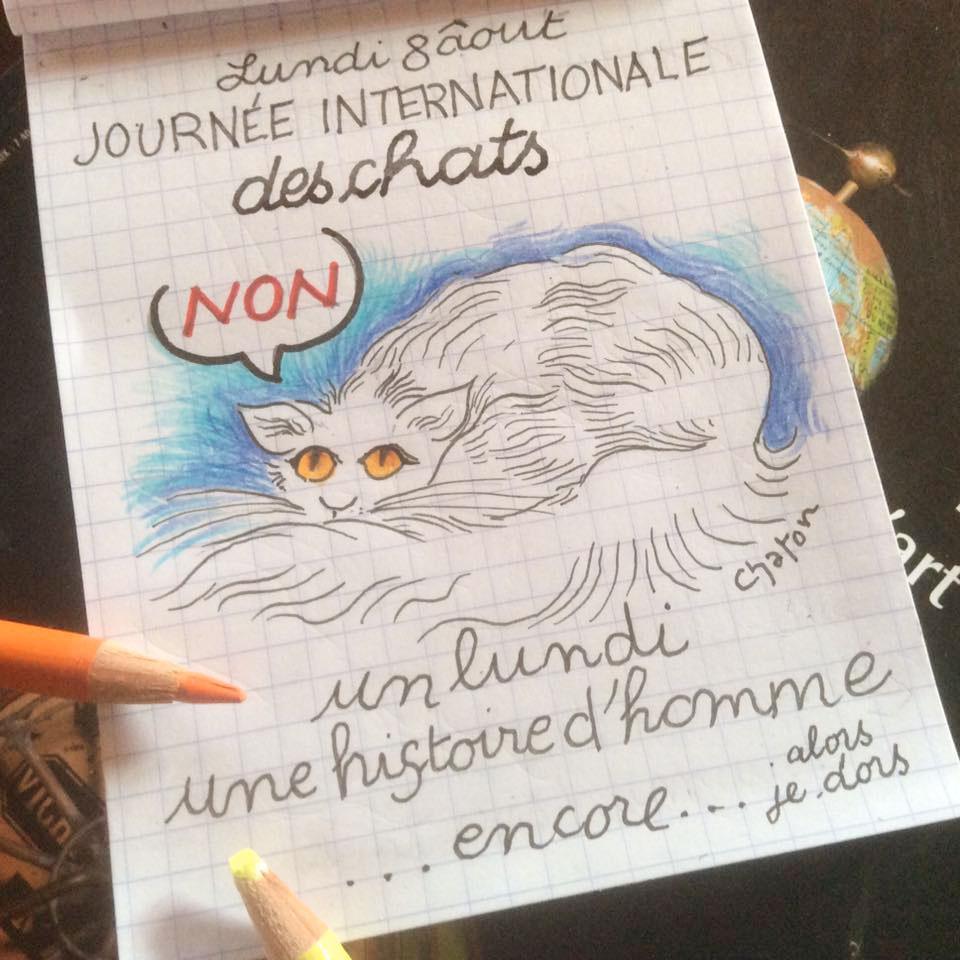 Lundi 8 âout
JOURNÉE INTERNATIONALE
des chats
NON
chaton
un lundi
une histoire d'homme
... encore... alors
je dors
VIGO
'art